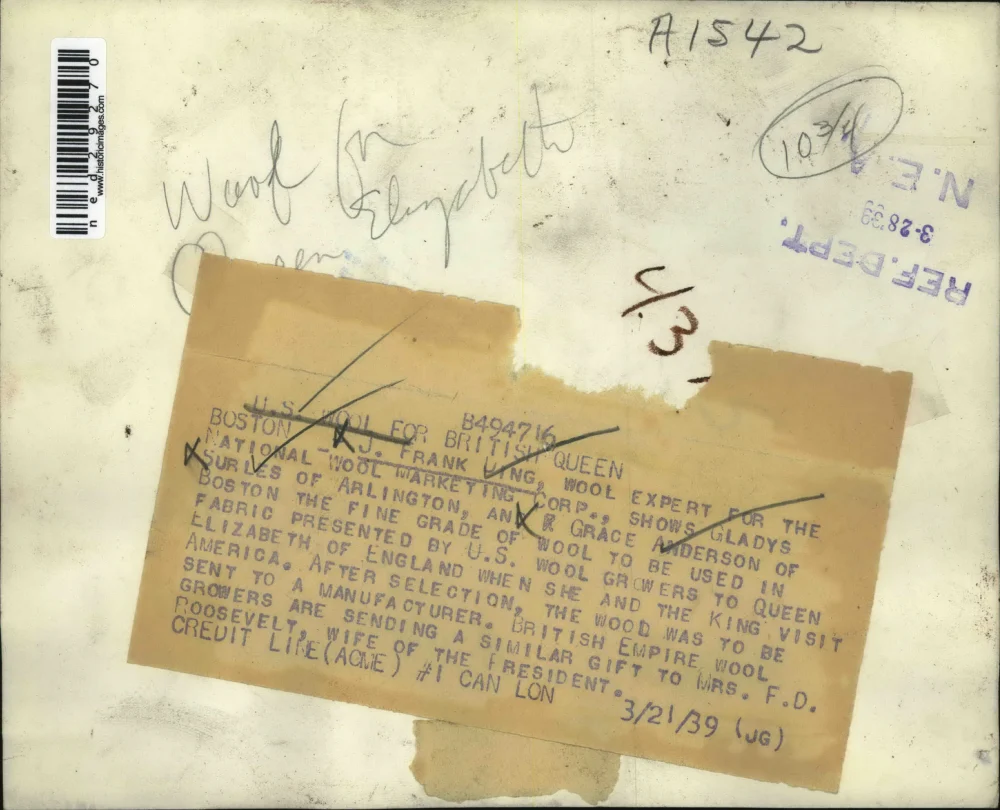 A1542
10 3/4
N.E.A
3-28 39
REF. DEPT.
ned29270
www.historicimages.com
Wool for
Queen Elizabeth
4/3
B494716
U.S. WOOL FOR BRITISH QUEEN
BOSTON -- J. FRANK WING, WOOL EXPERT FOR THE
NATIONAL WOOL MARKETING CORP., SHOWS GLADYS
SURLES OF ARLINGTON, AND GRACE ANDERSON OF
BOSTON THE FINE GRADE OF WOOL TO BE USED IN
FABRIC PRESENTED BY U.S. WOOL GROWERS TO QUEEN
ELIZABETH OF ENGLAND WHEN SHE AND THE KING VISIT
AMERICA. AFTER SELECTION, THE WOOD WAS TO BE
SENT TO A MANUFACTURER. BRITISH EMPIRE WOOL
GROWERS ARE SENDING A SIMILAR GIFT TO MRS. F.D.
ROOSEVELT, WIFE OF THE PRESIDENT.
CREDIT LINE (ACME) #1 CAN LON
3/21/39 (JG)